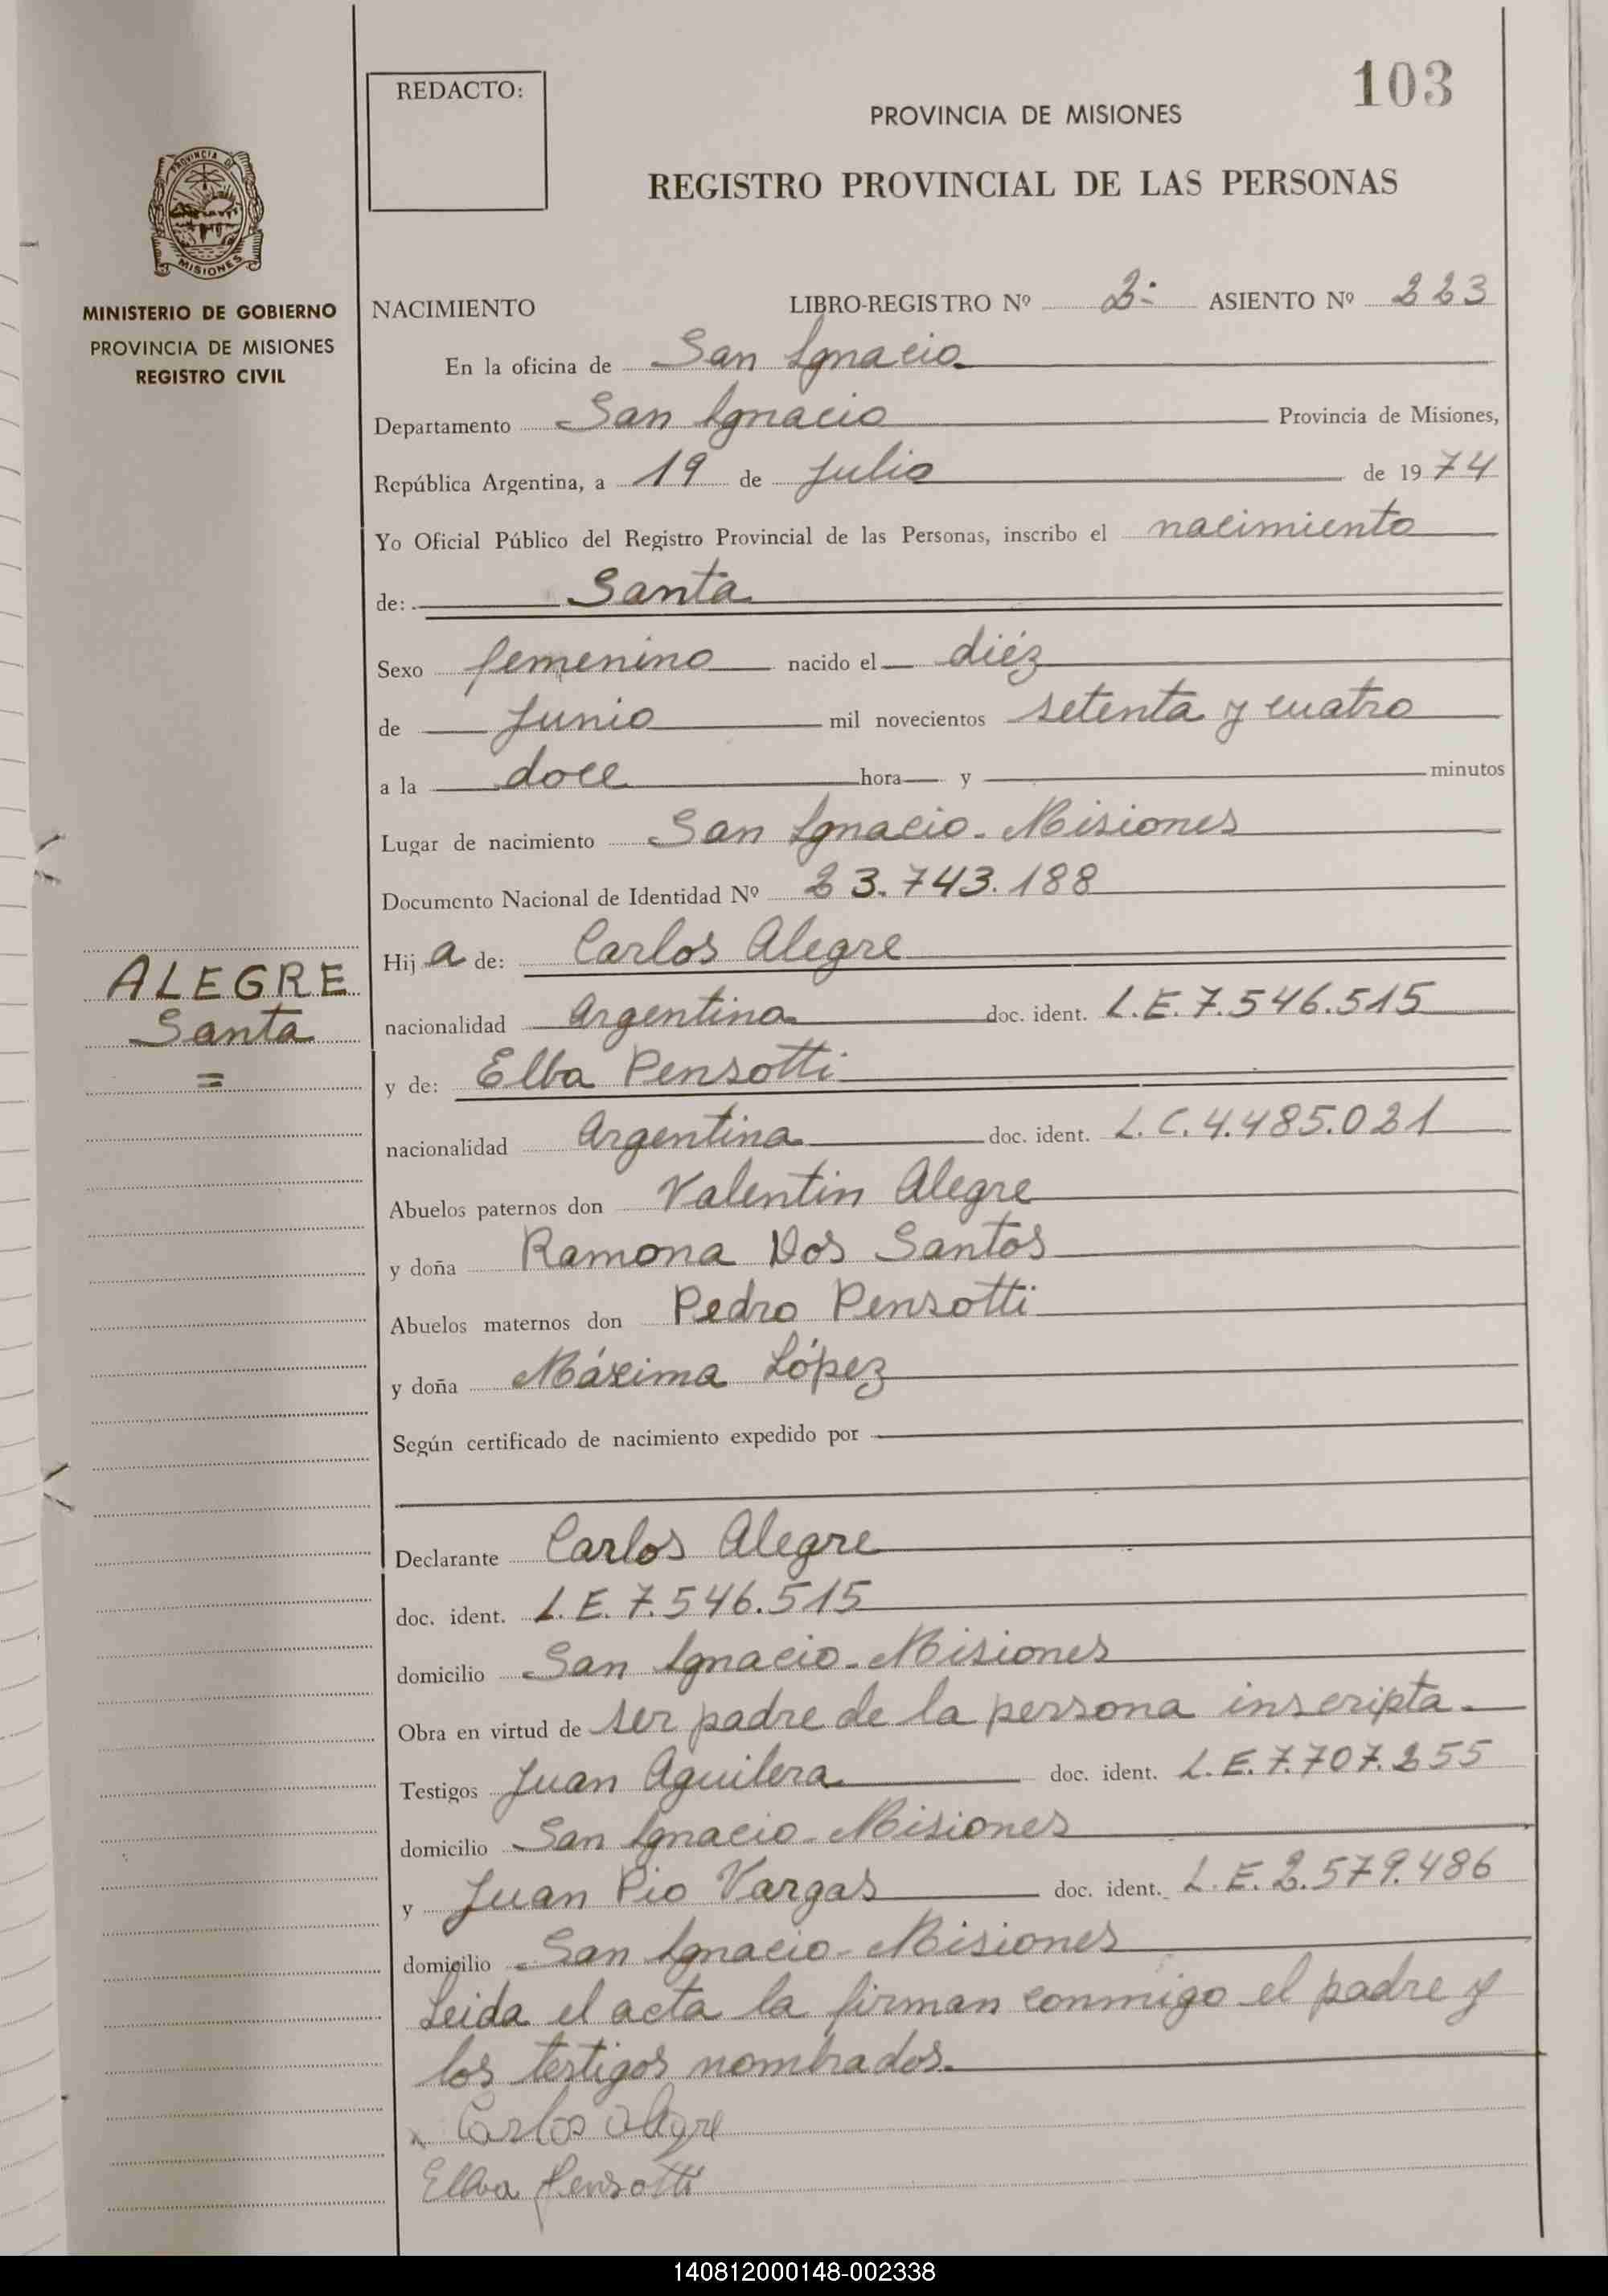 103
REDACTO:
PROVINCIA DE MISIONES
REGISTRO PROVINCIAL DE LAS PERSONAS
PROVINCIA DE
MISIONES
MINISTERIO DE GOBIERNO
PROVINCIA DE MISIONES
REGISTRO CIVIL
NACIMIENTO LIBRO-REGISTRO Nº 2º ASIENTO Nº 223
En la oficina de San Ignacio
Departamento San Ignacio Provincia de Misiones,
República Argentina, a 19 de Julio de 1974
Yo Oficial Público del Registro Provincial de las Personas, inscribo el nacimiento
de: Santa
Sexo femenino nacido el diéz
de Junio mil novecientos setenta y cuatro
a la doce hora y minutos
Lugar de nacimiento San Ignacio - Misiones
Documento Nacional de Identidad Nº 23.743.188
ALEGRE
Santa
=
Hija de: Carlos Alegre
nacionalidad Argentina doc. ident. L.E. 7.546.515
y de: Elba Pensotti
nacionalidad Argentina doc. ident. L.C. 4.485.021
Abuelos paternos don Valentin Alegre
y doña Ramona Dos Santos
Abuelos maternos don Pedro Pensotti
y doña Máxima López
Según certificado de nacimiento expedido por
Declarante Carlos Alegre
doc. ident. L.E. 7.546.515
domicilio San Ignacio - Misiones
Obra en virtud de ser padre de la persona inscripta.
Testigos Juan Aguilera doc. ident. L.E. 7.707.255
domicilio San Ignacio - Misiones
y Juan Pio Vargas doc. ident. L.E. 2.579.486
domicilio San Ignacio - Misiones
Leida el acta la firman conmigo el padre y
los testigos nombrados.
Carlos Alegre
Elba Pensotti
140812000148-002338